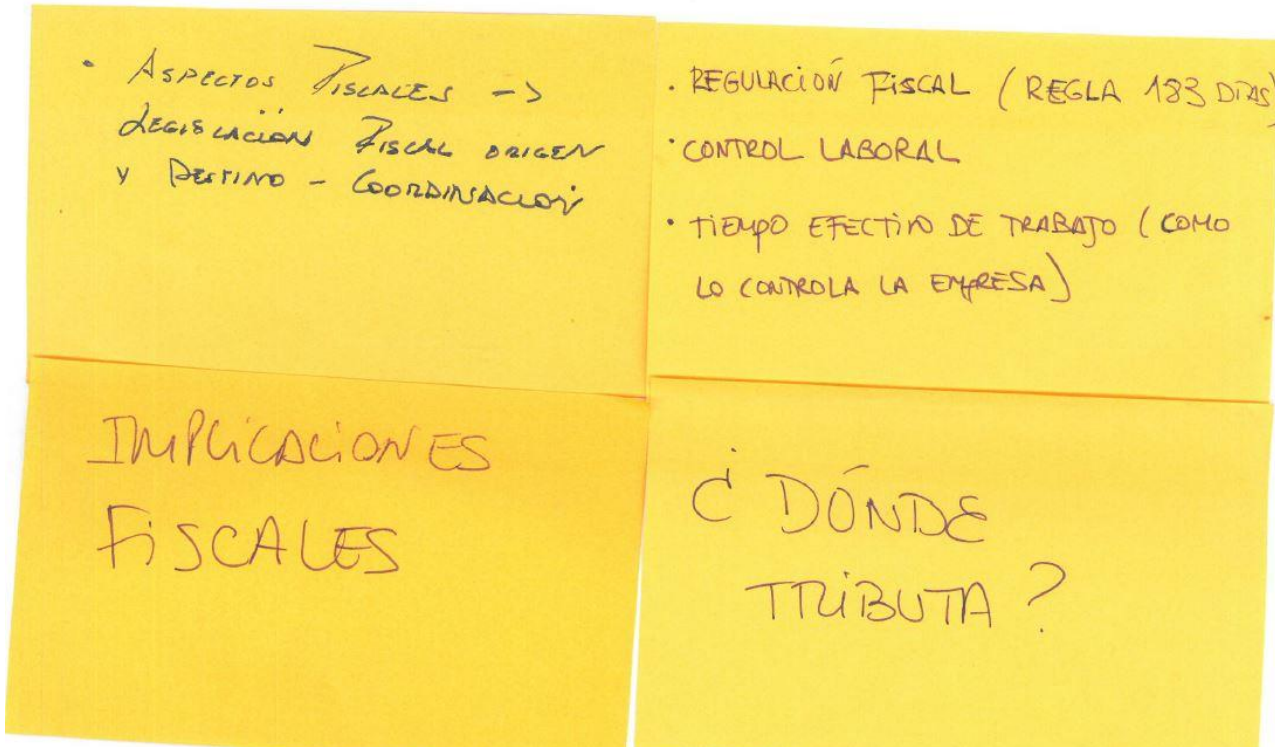 · ASPECTOS FISCALES ->
LEGISLACIÓN FISCAL ORIGEN
Y DESTINO - COORDINACIÓN
· REGULACIÓN FISCAL (REGLA 183 DÍAS)
· CONTROL LABORAL
· TIEMPO EFECTIVO DE TRABAJO (COMO
LO CONTROLA LA EMPRESA)
IMPLICACIONES
FISCALES
¿DÓNDE
TRIBUTA?